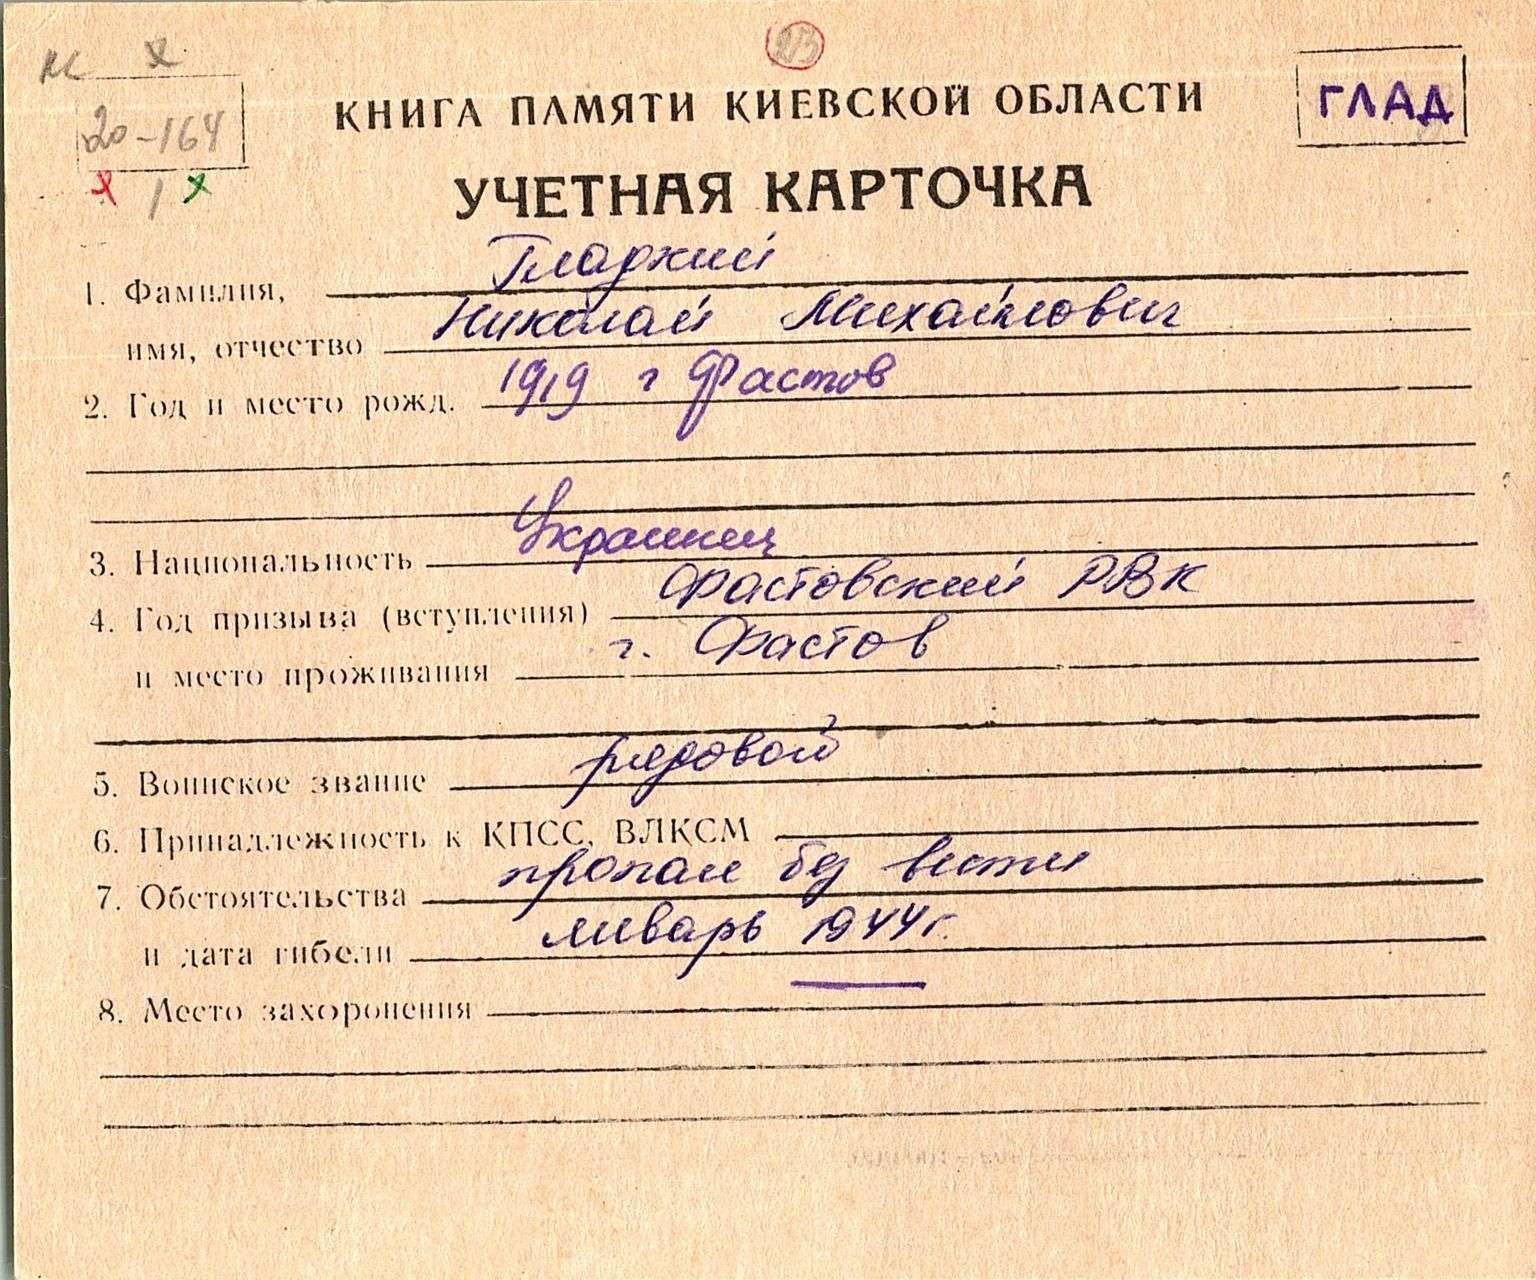 КС Х
23
20-164
КНИГА ПАМЯТИ КИЕВСКОЙ ОБЛАСТИ
ГЛАД
х 1 х
УЧЕТНАЯ КАРТОЧКА
1. Фамилия, Гладкий
имя, отчество Николай Михайлович
2. Год и место рожд. 1919 г Фастов
3. Национальность Украинец
4. Год призыва (вступления) Фастовский РВК
и место проживания г. Фастов
5. Воинское звание рядовой
6. Принадлежность к КПСС, ВЛКСМ
7. Обстоятельства пропал без вести
и дата гибели январь 1944г.
8. Место захоронения